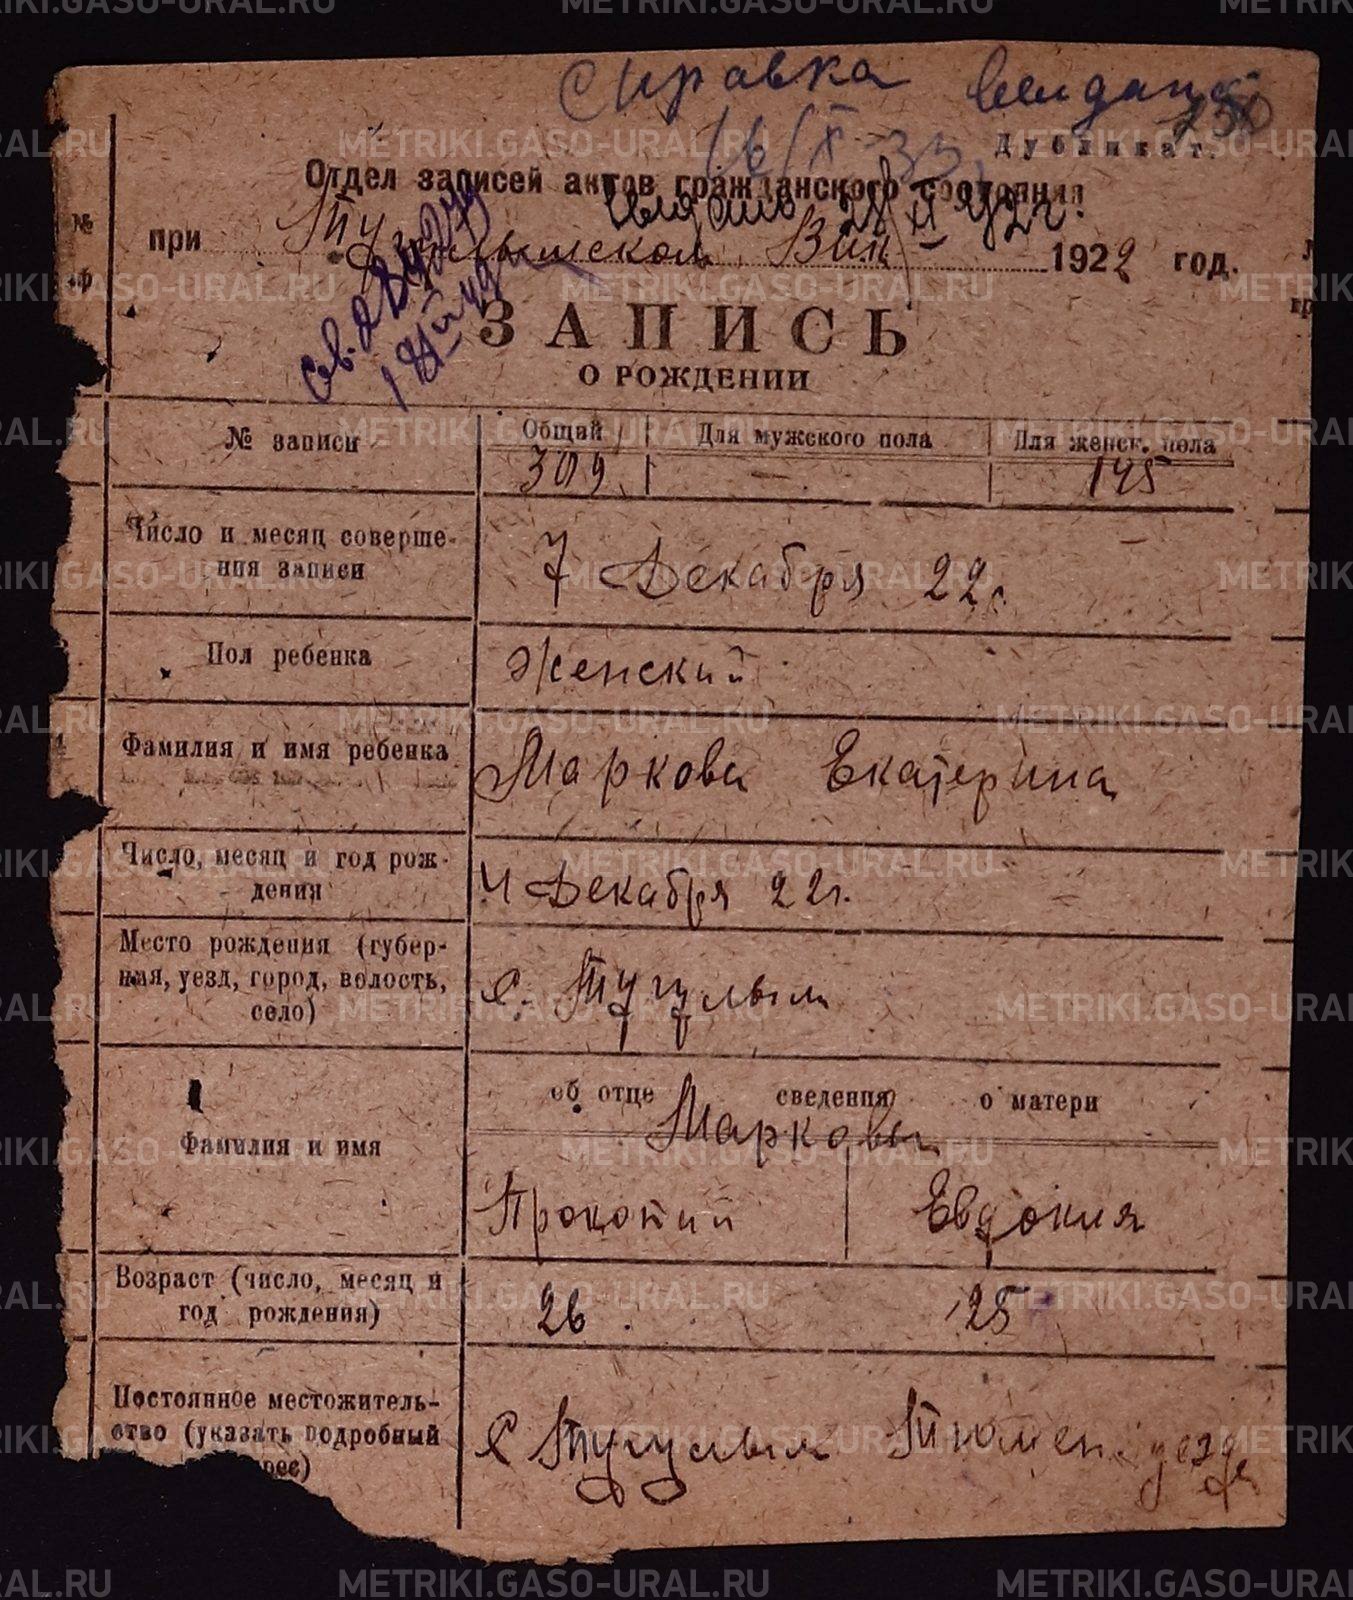 Справка выдана
150
16/X-33.
Дубликат.
Отдел записей актов гражданского состояния
№
при Тугулымском Вик 1922 год.
ЗАПИСЬ
О РОЖДЕНИИ
№ записи
Общий
Для мужского пола
Для женск. пола
309
—
145
Число и месяц соверше-
ния записи
7 Декабря 22г.
Пол ребенка
Женский
Фамилия и имя ребенка
Маркова Екатерина
Число, месяц и год рож-
дения
4 Декабря 22г.
Место рождения (губер-
ния, уезд, город, волость,
село)
с. Тугулым
об отце сведения о матери
Марковы
Фамилия и имя
Прокопий
Евдокия
Возраст (число, месяц и
год рождения)
26
25
Постоянное местожитель-
ство (указать подробный
рес)
с Тугулым Тюмен. уезда
METRIKI.GASO-URAL.RU